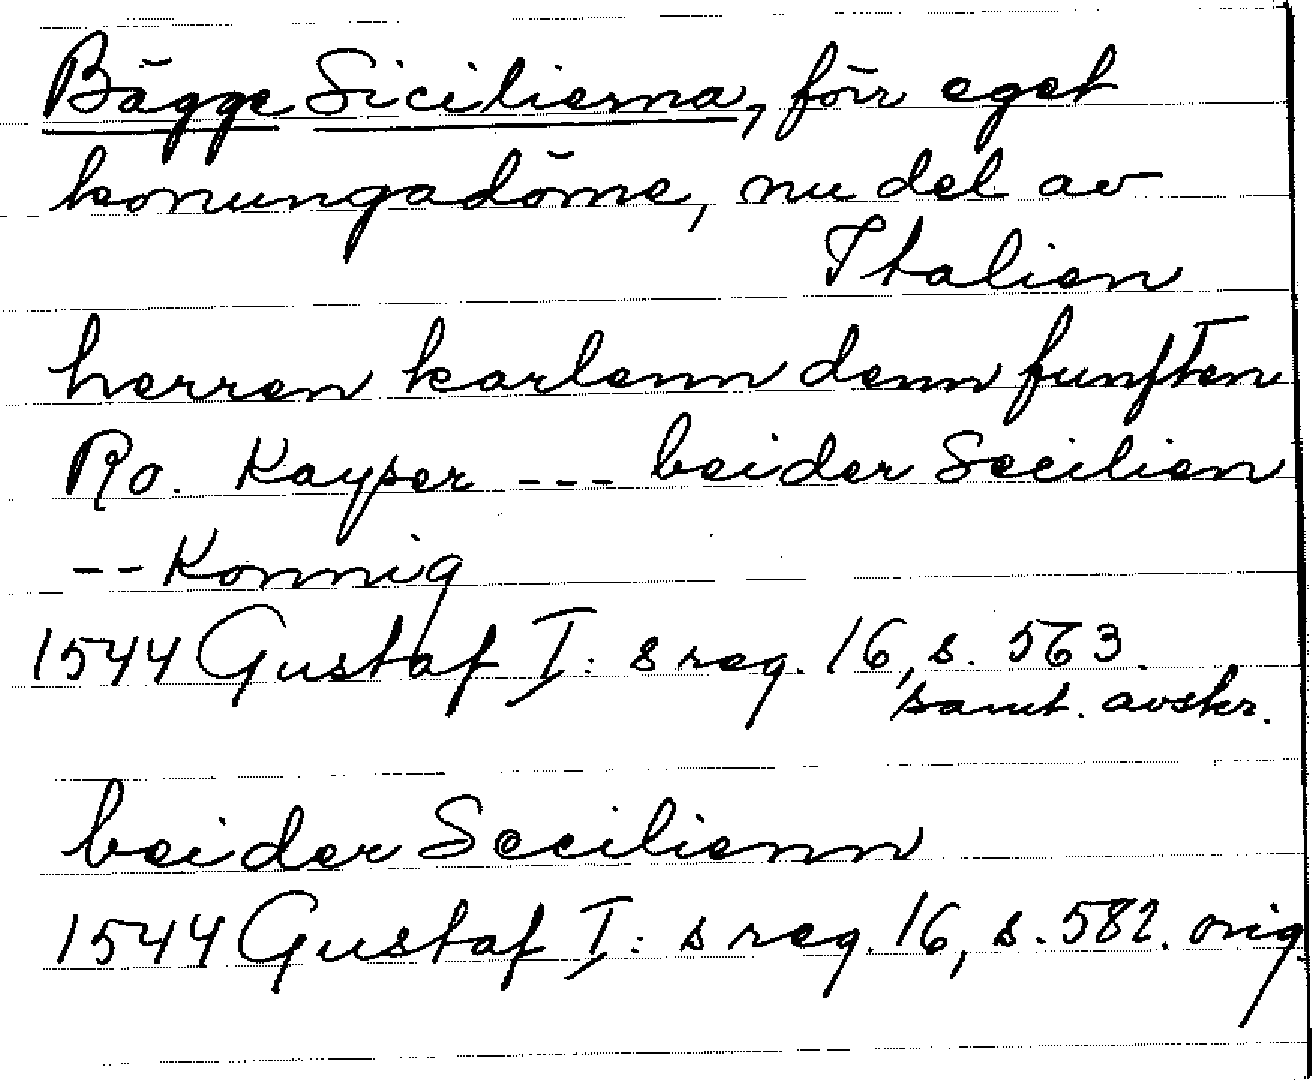 Bägge Sicilierna, förr eget
konungadöme, nu del av
Italien
herren karlenn denn funften
Ro. Kayser --- beider Secilien
-- Konnig
1544 Gustaf I: s reg. 16, s. 563.
samt. avskr.
beider Secilienn
1544 Gustaf I: s reg. 16, s. 582. orig.